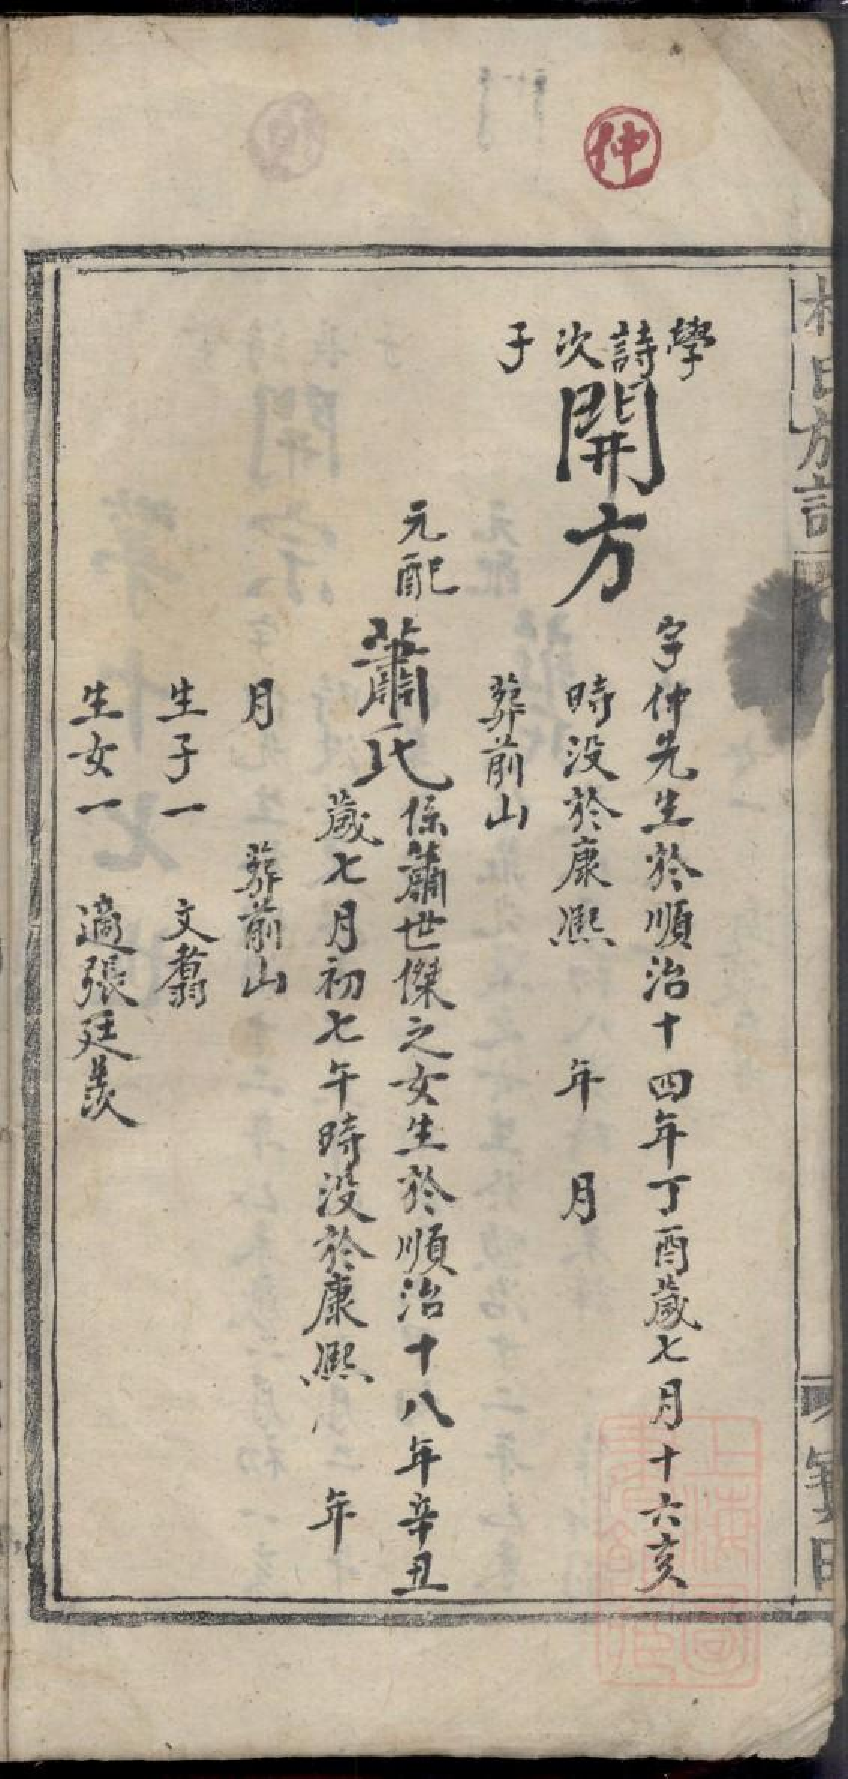 仲
學
詩
次
子
開方
字仲先生於順治十四年丁酉歲七月十六亥
時没於康熙 年 月
葬前山
元配
蕭氏
係蕭世傑之女生於順治十八年辛丑
歲七月初七午時没於康熙 年
月 葬前山
生子一 文翥
生女一 適張廷羨
上海圖書館藏